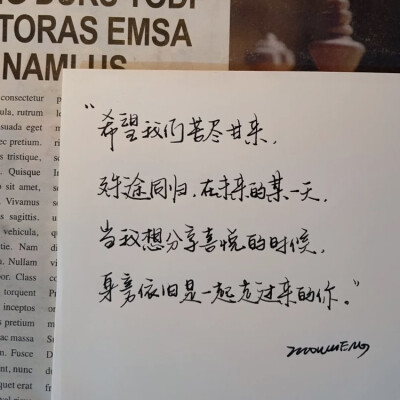 TORAS EMSA
NAMI US
consectetur
ula, rutrum
suada eget
ec pretium.
s tristique,
Quisque
o sit amet,
Vivamus
sagittis.
vehicula,
tie. Nam
Nullam
or. Class
torquent
inceptos
s pretium
ac massa
Fusce
nt, nunc
quet erat
“希望我们苦尽甘来,
殊途同归.在未来的某一天,
当我想分享喜悦的时候,
身旁依旧是一起走过来的你.”